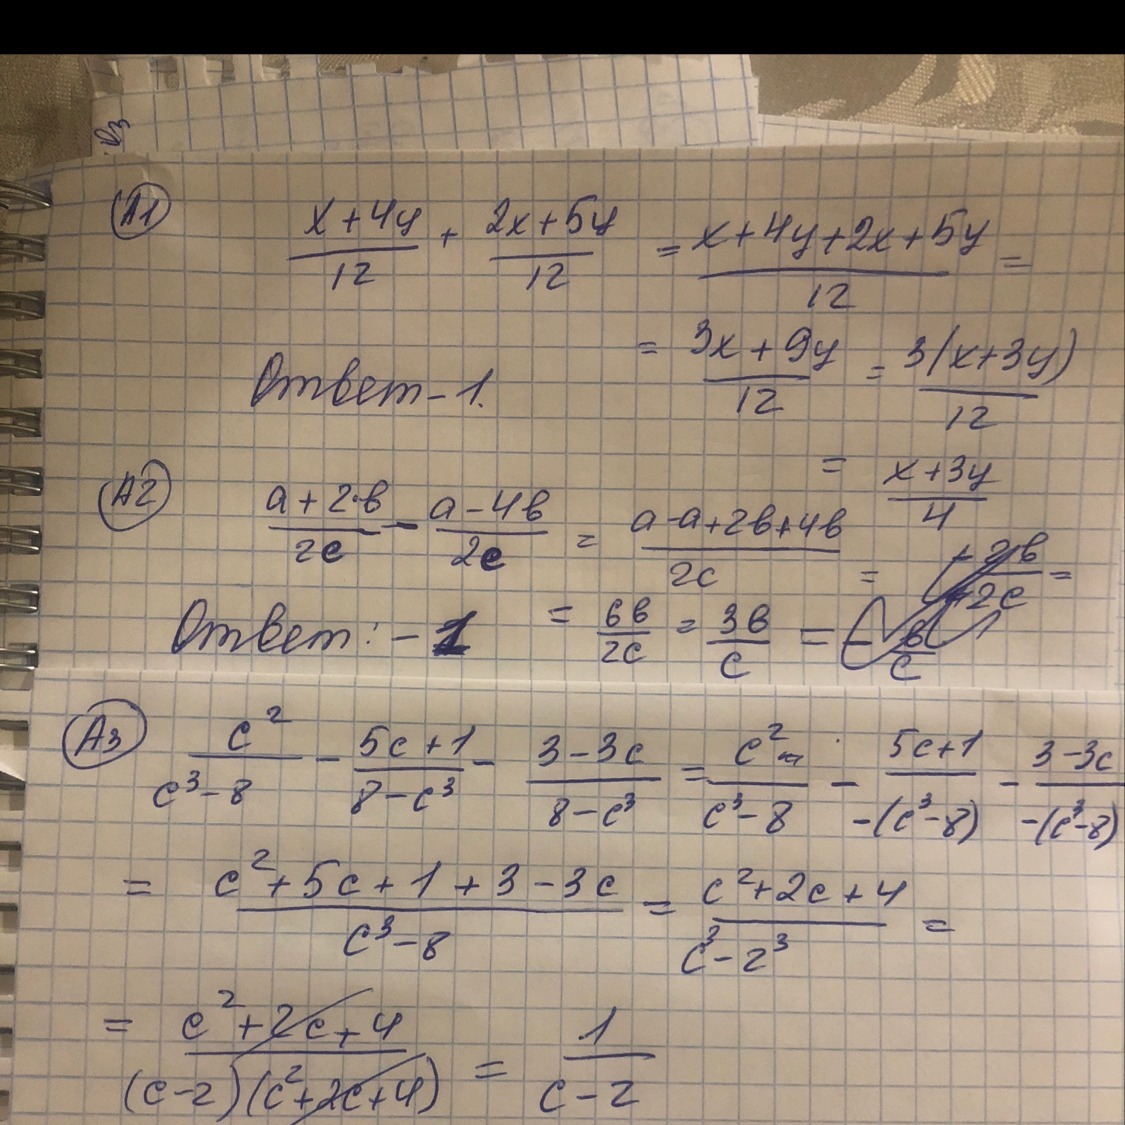 В3
А1 (x+4y)/12 + (2x+5y)/12 = (x+4y+2x+5y)/12 =
= (3x+9y)/12 = 3(x+3y)/12
Ответ-1.
= (x+3y)/4
А2 (a+2·в)/2c - (a-4в)/2c = (a-a+2в+4в)/2c =
Ответ:-1 = 6в/2c = 3в/c =
А3 c²/(c³-8) - (5c+1)/(8-c³) - (3-3c)/(8-c³) = c²/(c³-8) - (5c+1)/-(c³-8) - (3-3c)/-(c³-8)
= (c²+5c+1+3-3c)/(c³-8) = (c²+2c+4)/(c³-2³) =
= (c²+2c+4)/((c-2)(c²+2c+4)) = 1/(c-2)